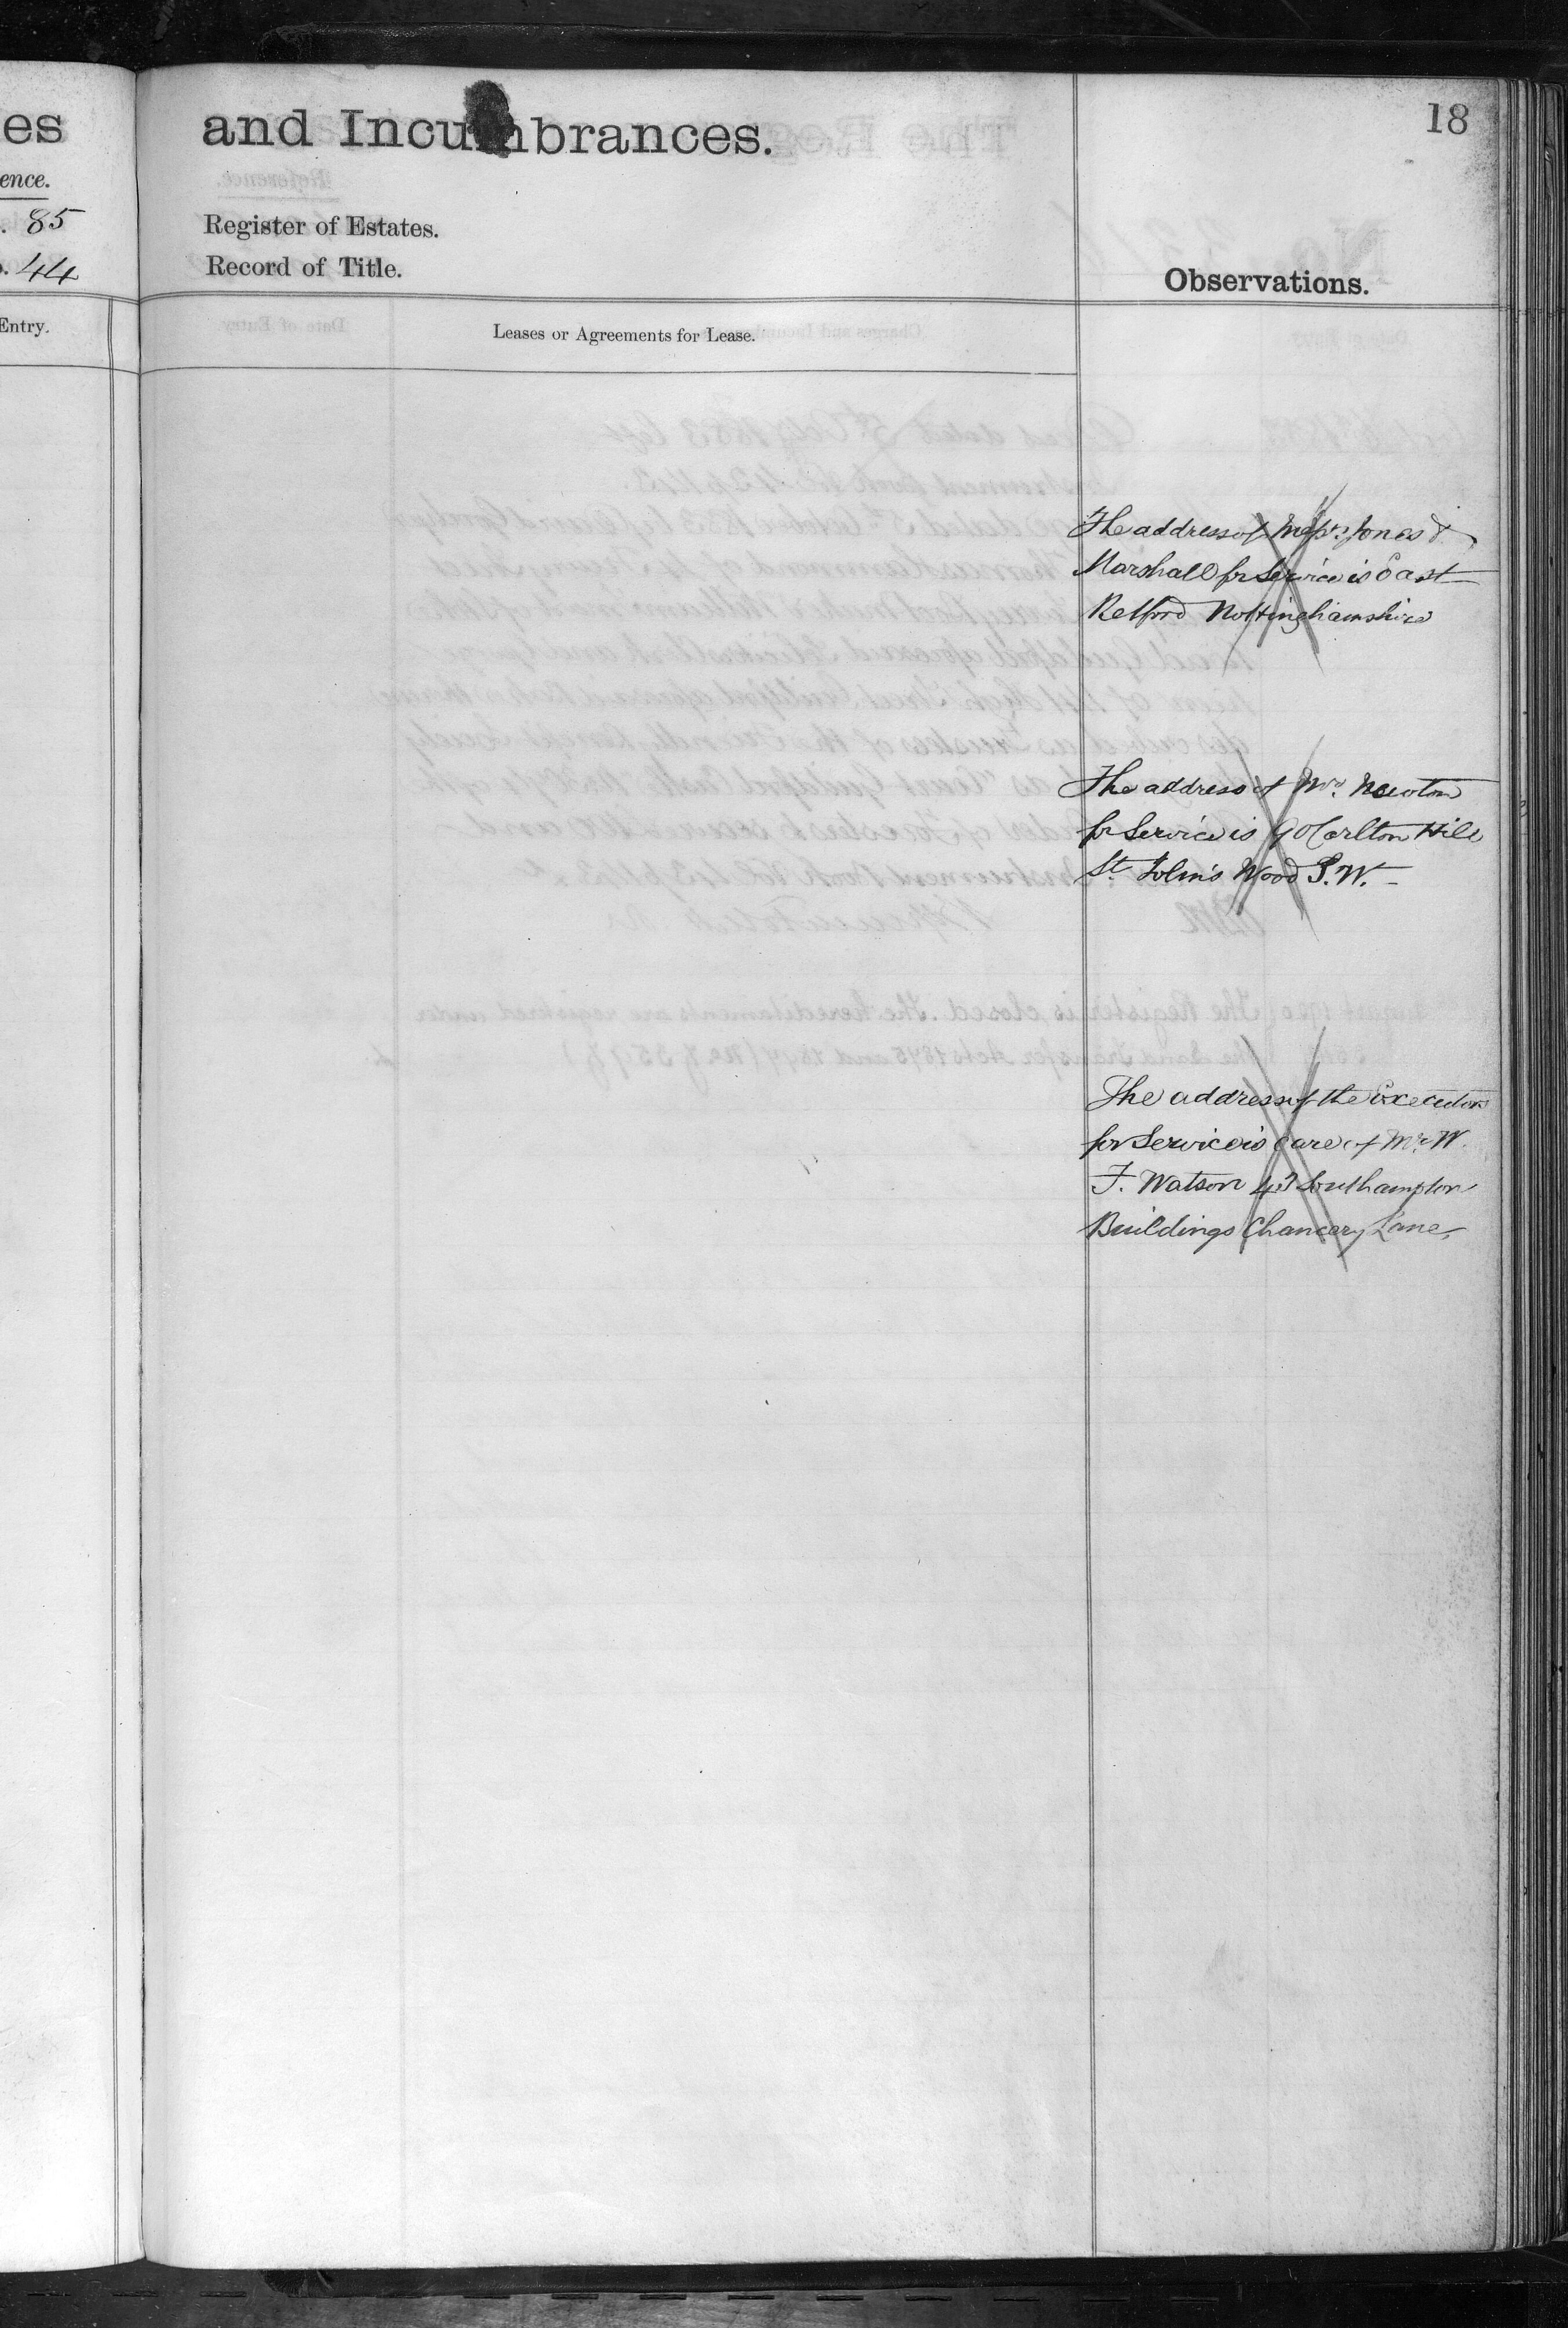 es
ence.
. 85
. 44
Entry.
and Incumbrances.
Register of Estates.
Record of Title.
Leases or Agreements for Lease.
18
Observations.
The address of Messrs. Jones &
Marshall for Service is East
Retford Nottinghamshire
The address of Newton
for Service is 90 Carlton Hill
St. John's Wood S.W.
The address of the Executors
for Service is care of Mr. W.
F. Watson Southampton
Buildings Chancery Lane,